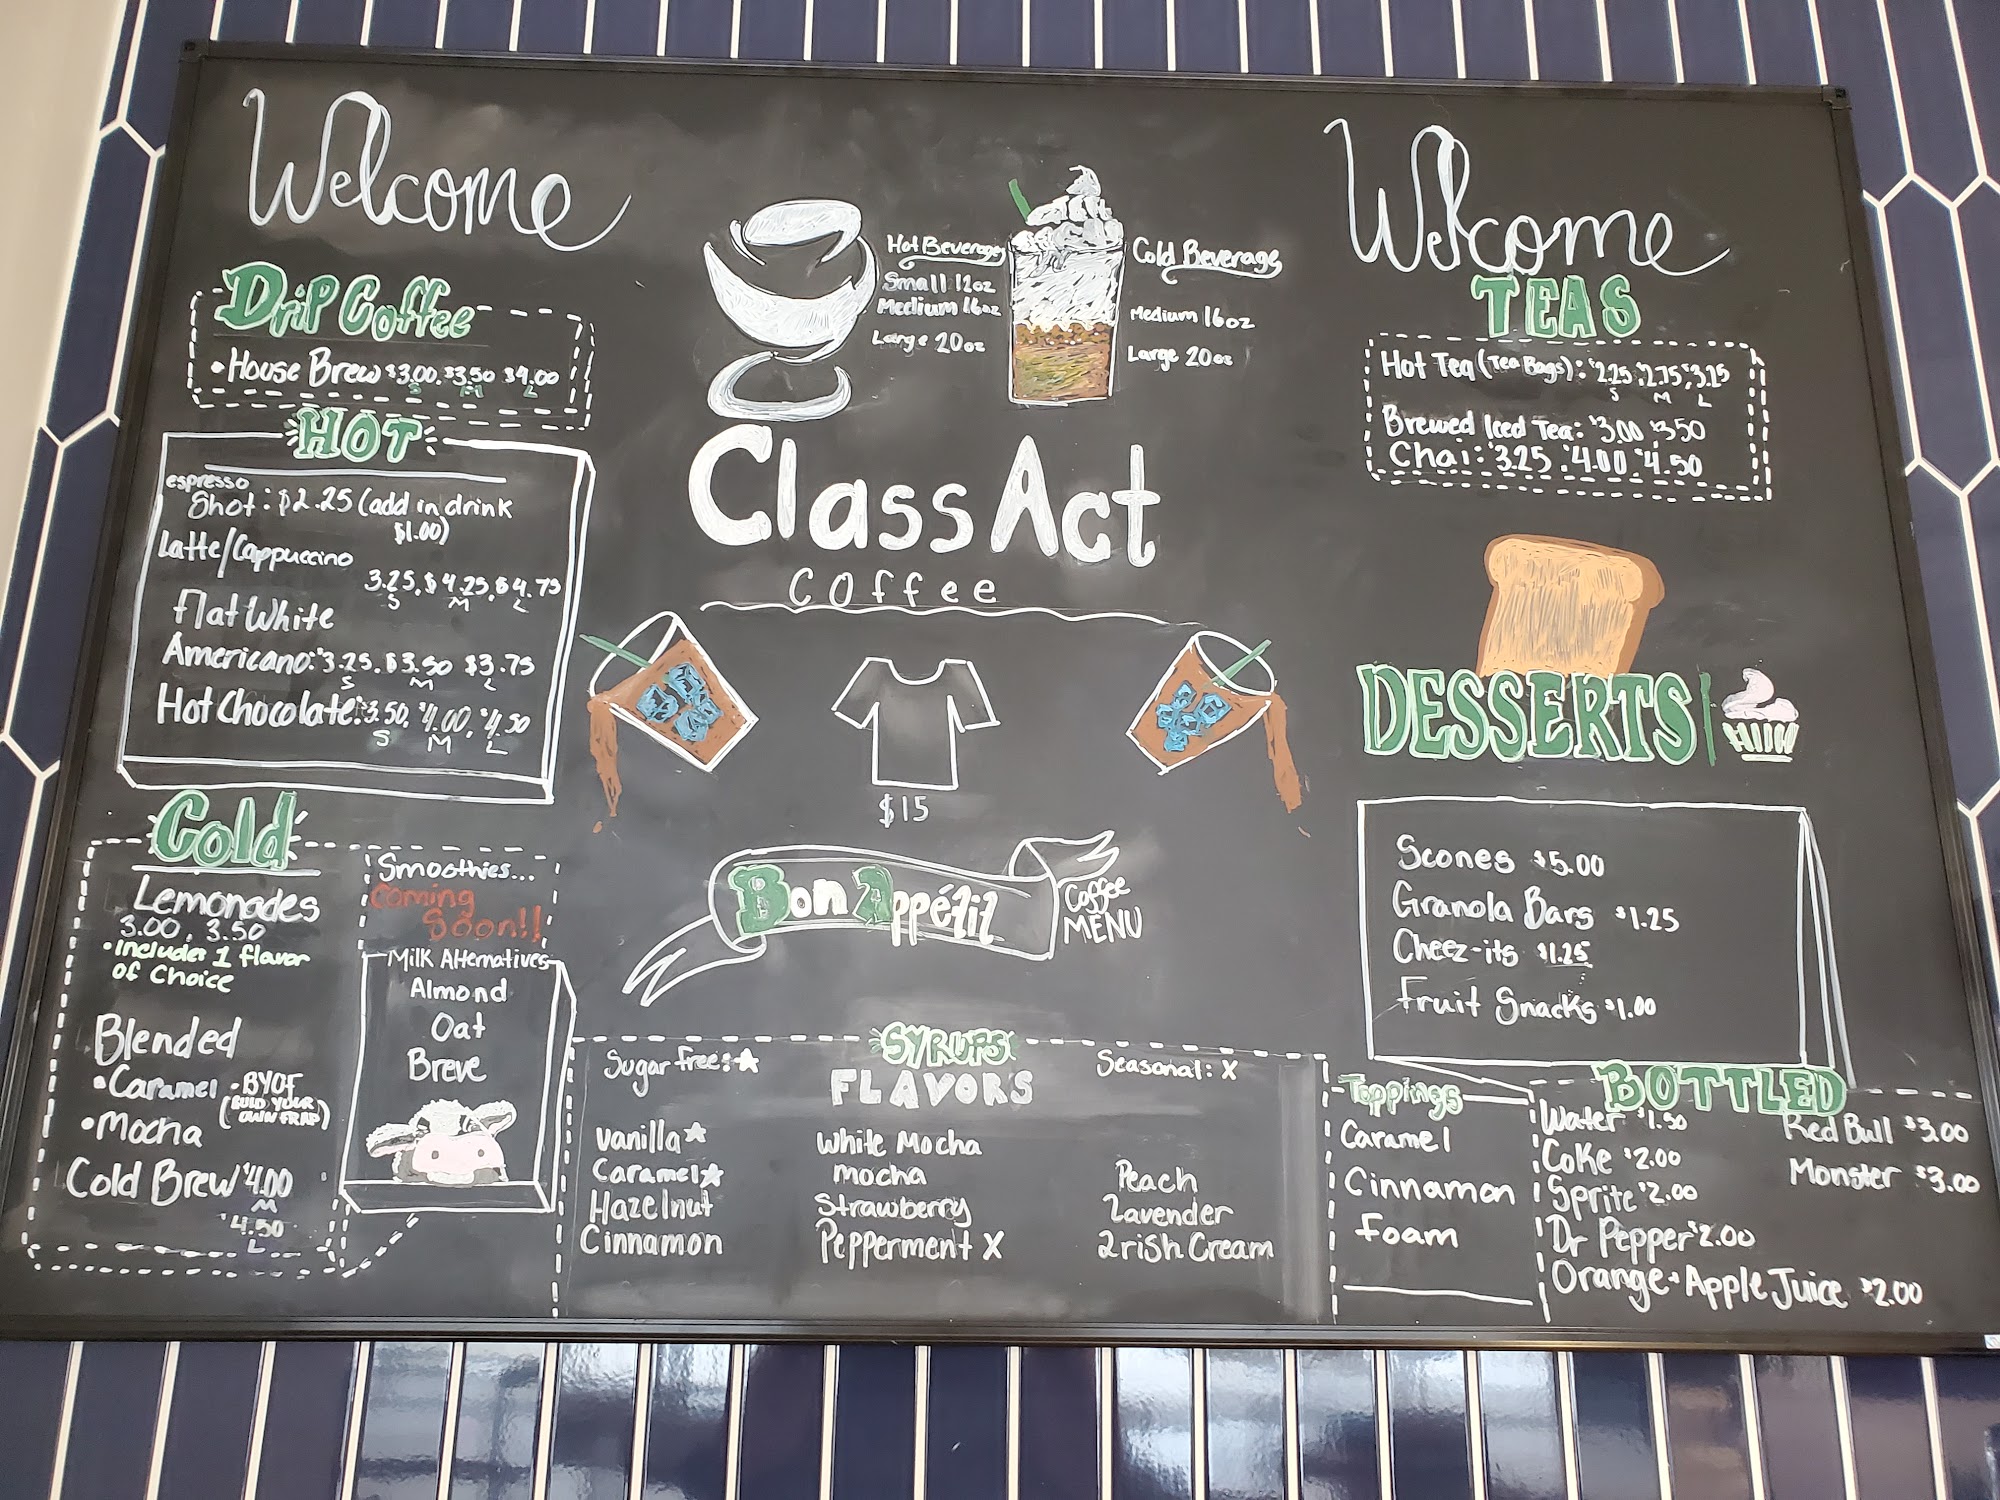 Welcome
Drip Coffee
• House Brew $3.00, $3.50 $4.00
S M L
HOT
espresso
Shot: $2.25 (add in drink
$1.00)
Latte/Cappuccino
3.25, $4.25, $4.75
S M L
Flat White
Americano: $3.25, $3.50 $3.75
S M L
Hot Chocolate: $3.50, $4.00, $4.50
S M L
Cold
Lemonades
3.00, 3.50
• includes 1 flavor
of choice
Blended
• Caramel
• BYOF
(BUILD YOUR
OWN FRAP)
• Mocha
Cold Brew $4.00
M
$4.50
L
Smoothies...
Coming
Soon!!
Milk Alternatives
Almond
Oat
Breve
Hot Beverages
Small 12oz
Medium 16oz
Large 20oz
Cold Beverage
Medium 16oz
Large 20oz
Class Act
Coffee
$15
Bon Appétit
Coffee
MENU
SYRUPS
FLAVORS
Sugar free: ☆
Seasonal: X
Vanilla ☆
Caramel ☆
Hazelnut
Cinnamon
White Mocha
Mocha
Strawberry
Pepperment X
Peach
Lavender
Irish Cream
Welcome
TEAS
Hot Tea (Tea Bags): $2.25, $2.75, $3.25
S M L
Brewed Iced Tea: $3.00 $3.50
Chai: $3.25, $4.00, $4.50
DESSERTS
Scones $5.00
Granola Bars $1.25
Cheez-its $1.25
Fruit Snacks $1.00
Toppings
Caramel
Cinnamon
Foam
BOTTLED
Water $1.50
Coke $2.00
Sprite $2.00
Dr Pepper $2.00
Orange • Apple Juice $2.00
Red Bull $3.00
Monster $3.00